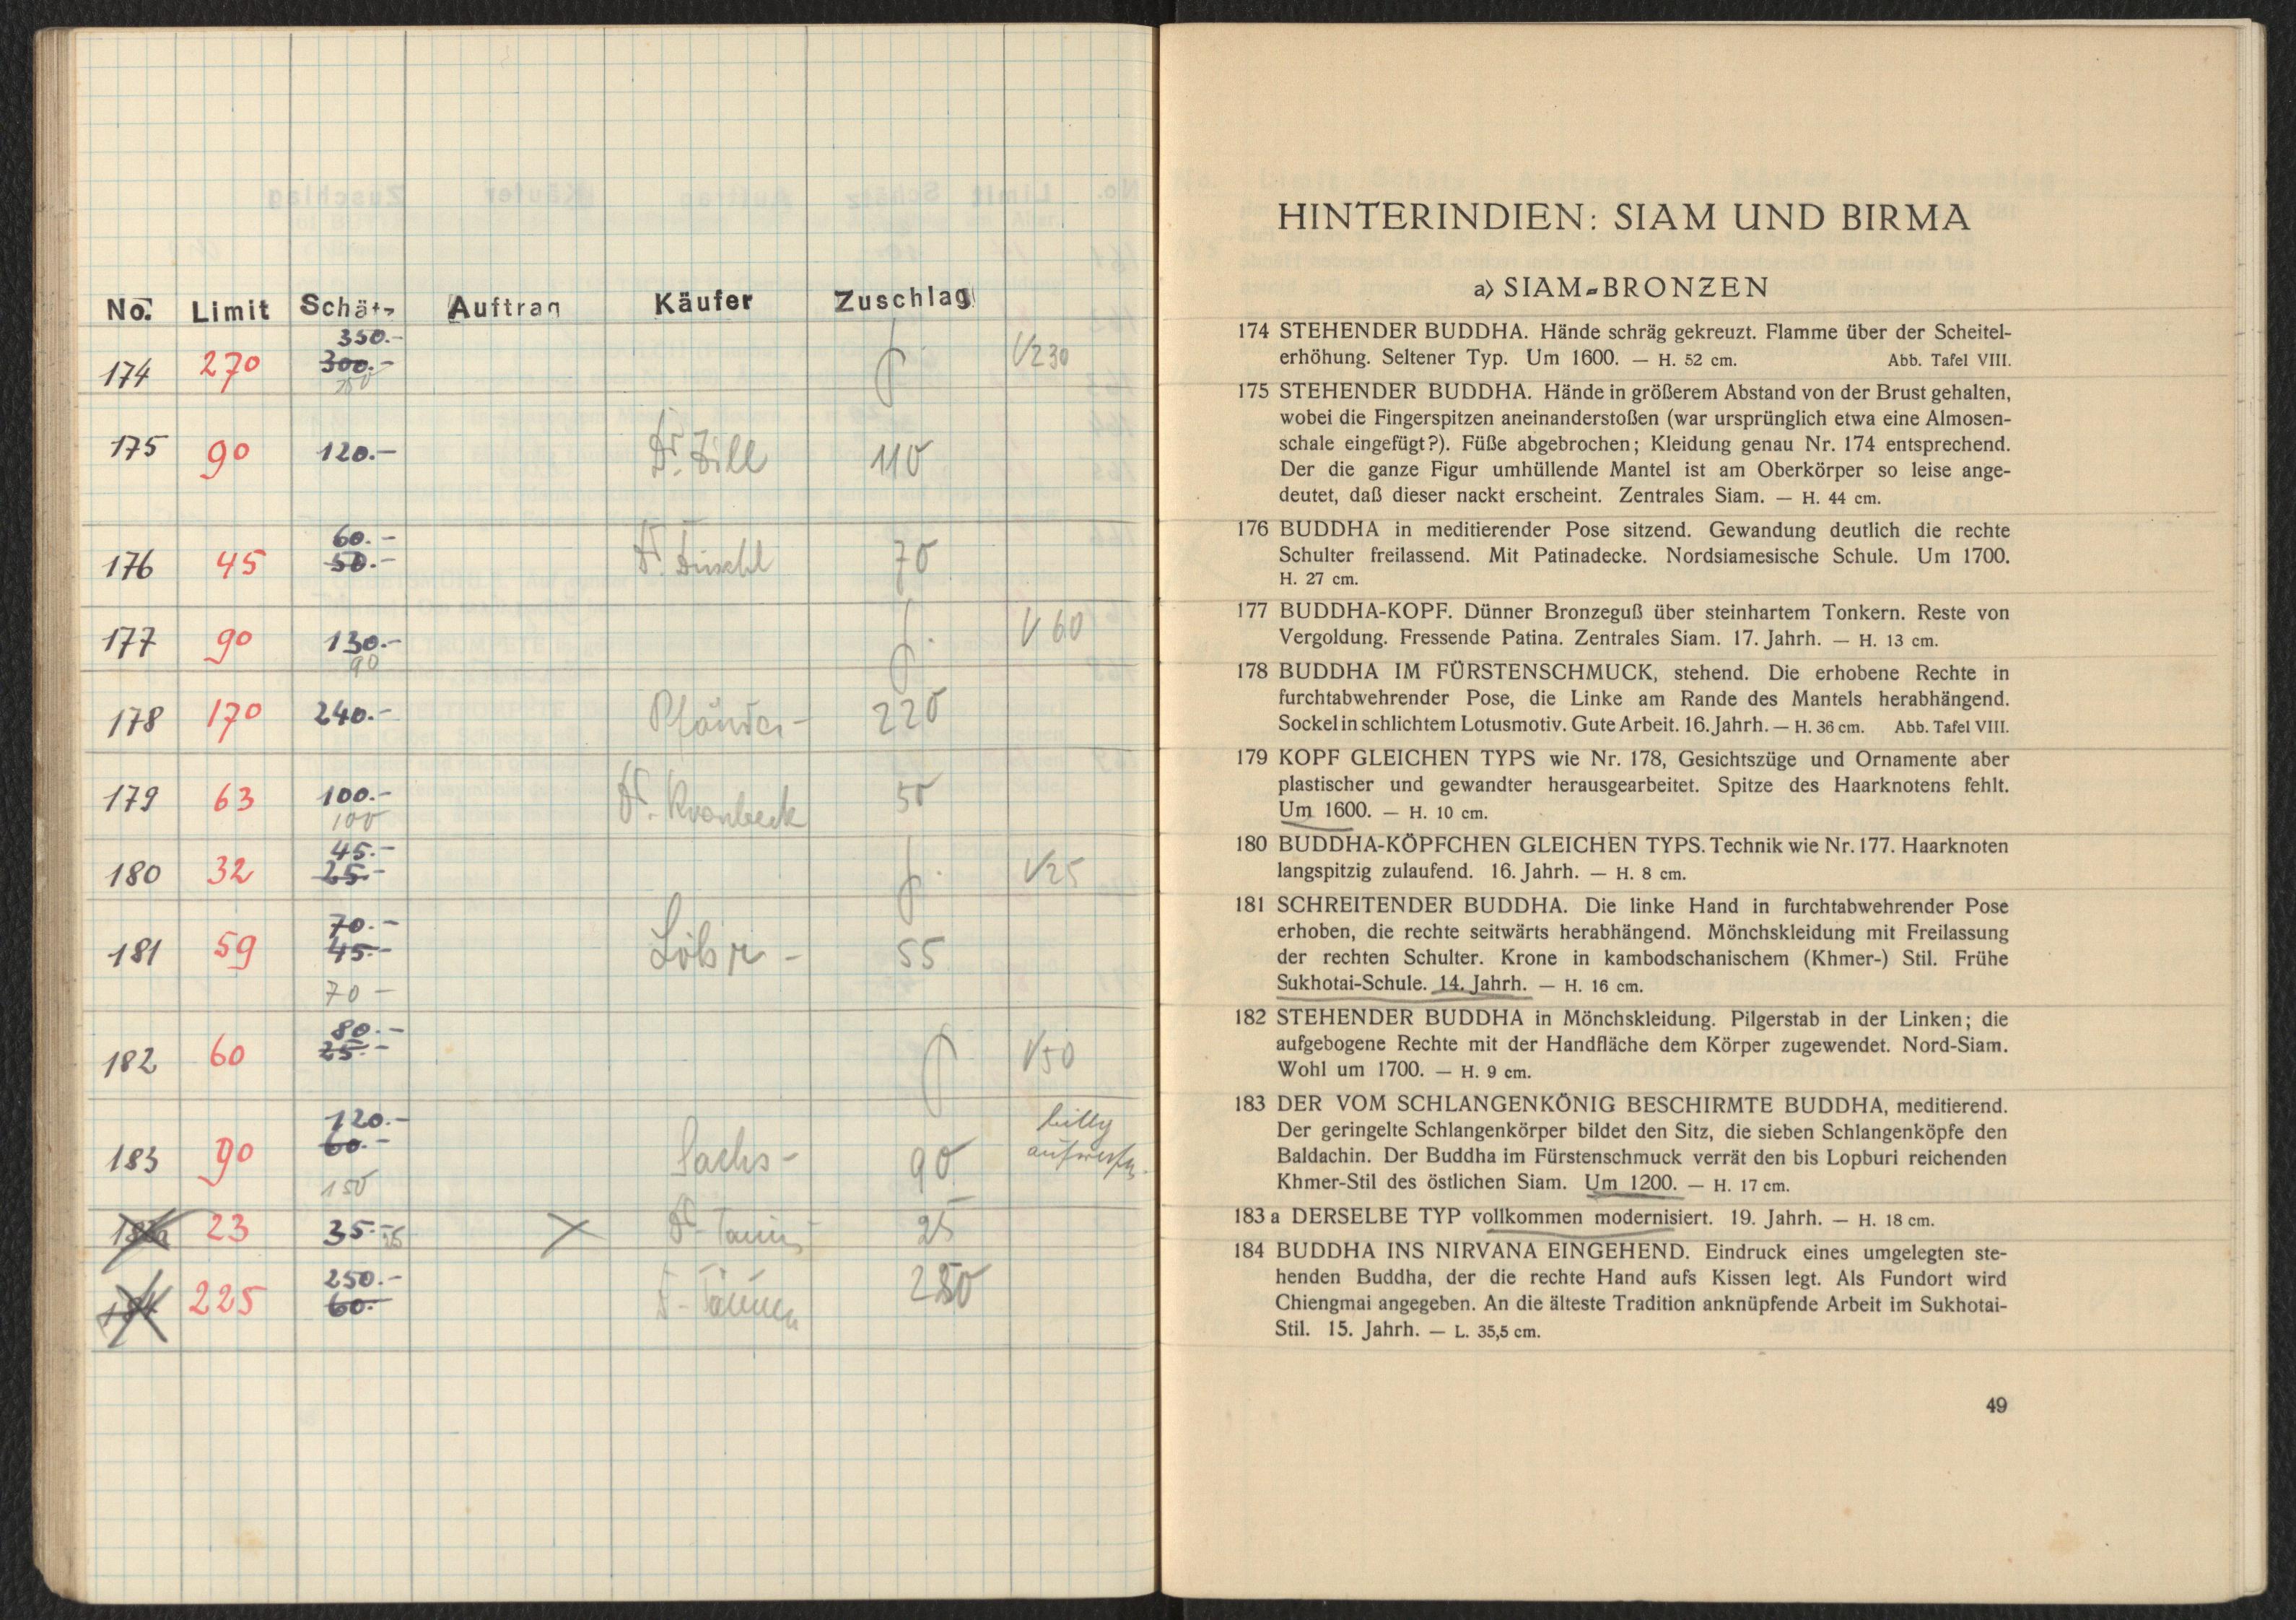 No. Limit Schätz Auftrag Käufer Zuschlag
350.-
174 270 300.- V230
250
175 90 120.- Dr. Zill 110
60.-
176 45 50.- Dr. 70
177 90 130.- V 60
90
178 170 240.- Pfänder - 220
179 63 100.- Dr. Kronbeck 50
100
45.-
180 32 25.- V25
70.-
181 59 45.- Löhr - 55
70 -
80.-
182 60 25.- V50
120.-
183 90 60.- Sachs - 90
150
183a 23 35.- 25 X Dr. 25
250.-
184 225 60.- 280
HINTERINDIEN: SIAM UND BIRMA
a) SIAM-BRONZEN
174 STEHENDER BUDDHA. Hände schräg gekreuzt. Flamme über der Scheitel-
erhöhung. Seltener Typ. Um 1600. — H. 52 cm. Abb. Tafel VIII.
175 STEHENDER BUDDHA. Hände in größerem Abstand von der Brust gehalten,
wobei die Fingerspitzen aneinanderstoßen (war ursprünglich etwa eine Almosen-
schale eingefügt?). Füße abgebrochen; Kleidung genau Nr. 174 entsprechend.
Der die ganze Figur umhüllende Mantel ist am Oberkörper so leise ange-
deutet, daß dieser nackt erscheint. Zentrales Siam. — H. 44 cm.
176 BUDDHA in meditierender Pose sitzend. Gewandung deutlich die rechte
Schulter freilassend. Mit Patinadecke. Nordsiamesische Schule. Um 1700.
H. 27 cm.
177 BUDDHA-KOPF. Dünner Bronzeguß über steinhartem Tonkern. Reste von
Vergoldung. Fressende Patina. Zentrales Siam. 17. Jahrh. — H. 13 cm.
178 BUDDHA IM FÜRSTENSCHMUCK, stehend. Die erhobene Rechte in
furchtabwehrender Pose, die Linke am Rande des Mantels herabhängend.
Sockel in schlichtem Lotusmotiv. Gute Arbeit. 16. Jahrh. — H. 36 cm. Abb. Tafel VIII.
179 KOPF GLEICHEN TYPS wie Nr. 178, Gesichtszüge und Ornamente aber
plastischer und gewandter herausgearbeitet. Spitze des Haarknotens fehlt.
Um 1600. — H. 10 cm.
180 BUDDHA-KÖPFCHEN GLEICHEN TYPS. Technik wie Nr. 177. Haarknoten
langspitzig zulaufend. 16. Jahrh. — H. 8 cm.
181 SCHREITENDER BUDDHA. Die linke Hand in furchtabwehrender Pose
erhoben, die rechte seitwärts herabhängend. Mönchskleidung mit Freilassung
der rechten Schulter. Krone in kambodschanischem (Khmer-) Stil. Frühe
Sukhotai-Schule. 14. Jahrh. — H. 16 cm.
182 STEHENDER BUDDHA in Mönchskleidung. Pilgerstab in der Linken; die
aufgebogene Rechte mit der Handfläche dem Körper zugewendet. Nord-Siam.
Wohl um 1700. — H. 9 cm.
183 DER VOM SCHLANGENKÖNIG BESCHIRMTE BUDDHA, meditierend.
Der geringelte Schlangenkörper bildet den Sitz, die sieben Schlangenköpfe den
Baldachin. Der Buddha im Fürstenschmuck verrät den bis Lopburi reichenden
Khmer-Stil des östlichen Siam. Um 1200. — H. 17 cm.
183 a DERSELBE TYP vollkommen modernisiert. 19. Jahrh. — H. 18 cm.
184 BUDDHA INS NIRVANA EINGEHEND. Eindruck eines umgelegten ste-
henden Buddha, der die rechte Hand aufs Kissen legt. Als Fundort wird
Chiengmai angegeben. An die älteste Tradition anknüpfende Arbeit im Sukhotai-
Stil. 15. Jahrh. — L. 35,5 cm.
49